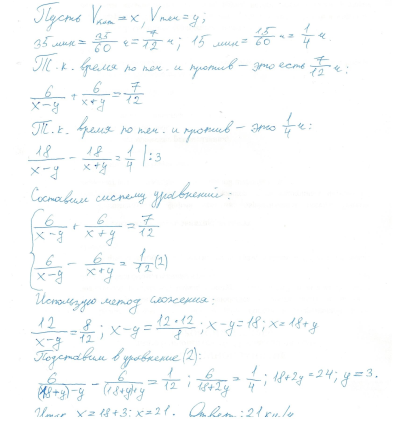 Пусть Vкат=x, Vтеч=y;
35 мин = 35/60 ч = 7/12 ч; 15 мин = 15/60 ч = 1/4 ч.
Т.к. время по теч. и против – это есть 7/12 ч:
6/(x-y) + 6/(x+y) = 7/12
Т.к. время по теч. и против – это 1/4 ч:
18/(x-y) - 18/(x+y) = 1/4 |:3
Составим систему уравнений:
6/(x-y) + 6/(x+y) = 7/12
6/(x-y) - 6/(x+y) = 1/12 (2)
Использую метод сложения:
12/(x-y) = 8/12; x-y = 12•12/8; x-y=18; x=18+y
Подставим в уравнение (2):
6/((18+y)-y) - 6/(18+y)+y = 1/12; 6/(18+2y) = 1/4; 18+2y=24; y=3.
Итак x=18+3; x=21. Ответ: 21 км/ч